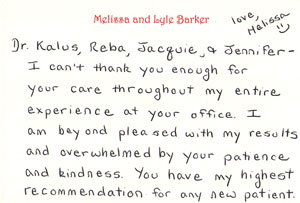 Melissa and Lyle Barker
love,
Melissa
Dr. Kalus, Reba, Jacquie, & Jennifer-
I can't thank you enough for
your care throughout my entire
experience at your office. I
am beyond pleased with my results
and overwhelmed by your patience
and kindness. You have my highest
recommendation for any new patient.